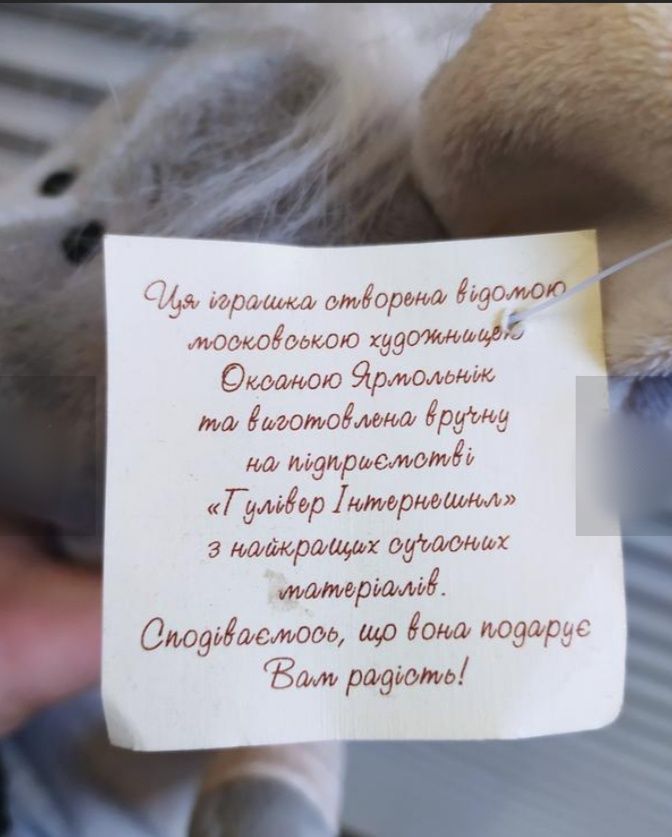 Ця іграшка створена відомою
московською художницею
Оксаною Ярмольнік
та виготовлена вручну
на підприємстві
«Гулівер Інтернешнл»
з найкращих сучасних
матеріалів.
Сподіваємось, що вона подарує
Вам радість!